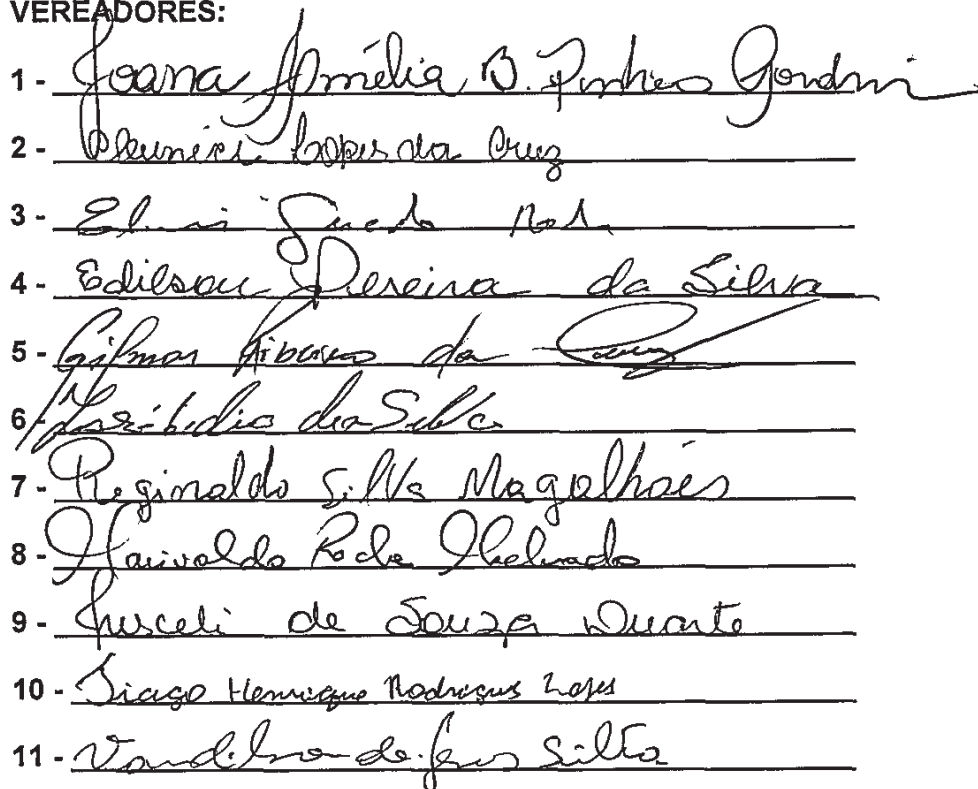 VEREADORES:
1 - Joana Amélia B. Pinheo Gondim
2 - Cleunici Lopes da Cruz
3 -
4 - Edilson Pereira da Silva
5 - Gilmar Ribeiro da Cruz
6 - da Silva
7 - Reginaldo Silva Magalhães
8 - Marivaldo Rocha Machado
9 - Jusceli de Souza Duarte
10 - Tiago Henrique Rodrigues Lopes
11 - Vandilson de Jesus Silva